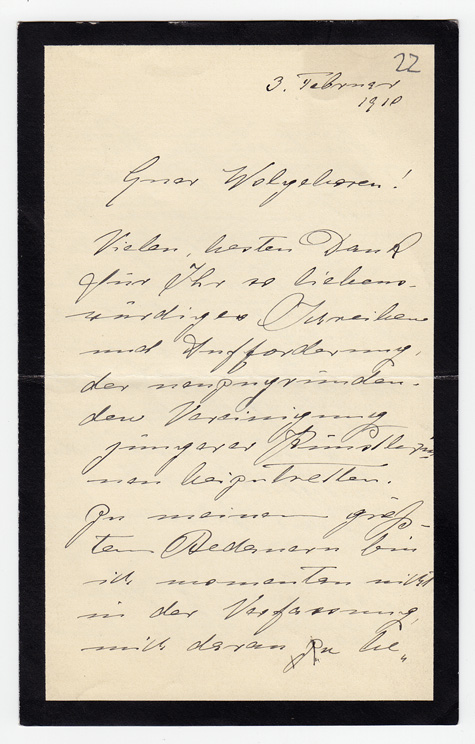 22
3. Februar
1910
Euer Wolgeboren!
Vielen, besten Dank
für Ihr so liebens-
würdiges Schreiben
und Aufforderung,
der neuzugründen-
den Vereinigung
jüngerer Künstlerin
nen beizutretten.
Zu meinem größ-
ten Bedauern bin
ich momentan nicht
in der Verfassung,
mich daran zu be„